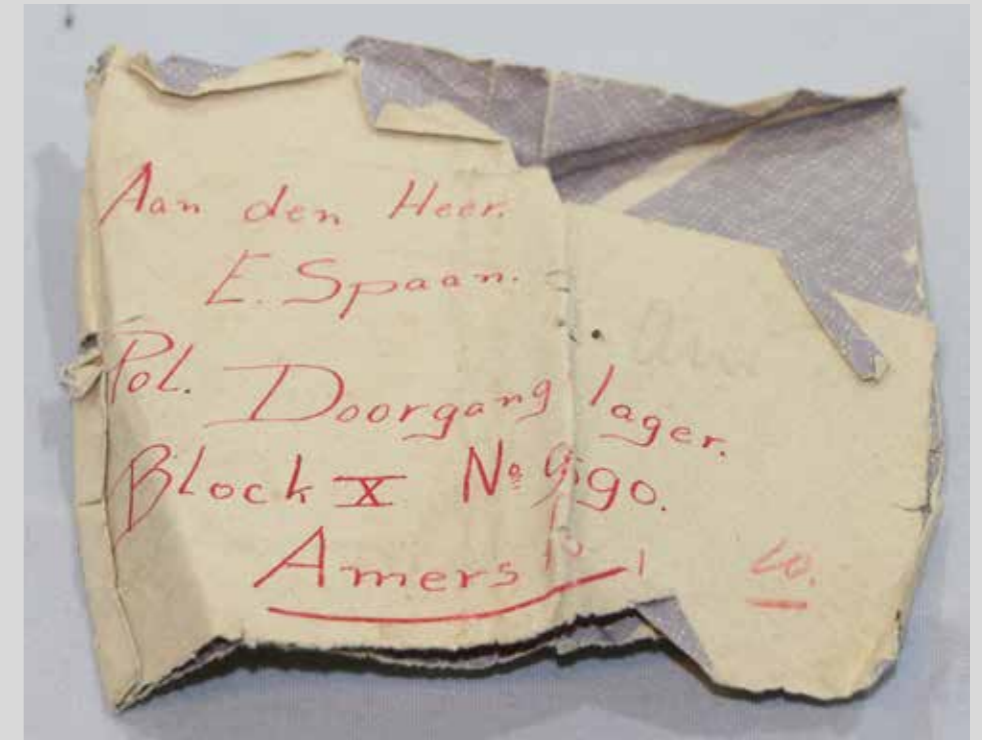 Aan den Heer.
E. Spaan.
Pol. Doorgang lager.
Block X No 990.
Amers